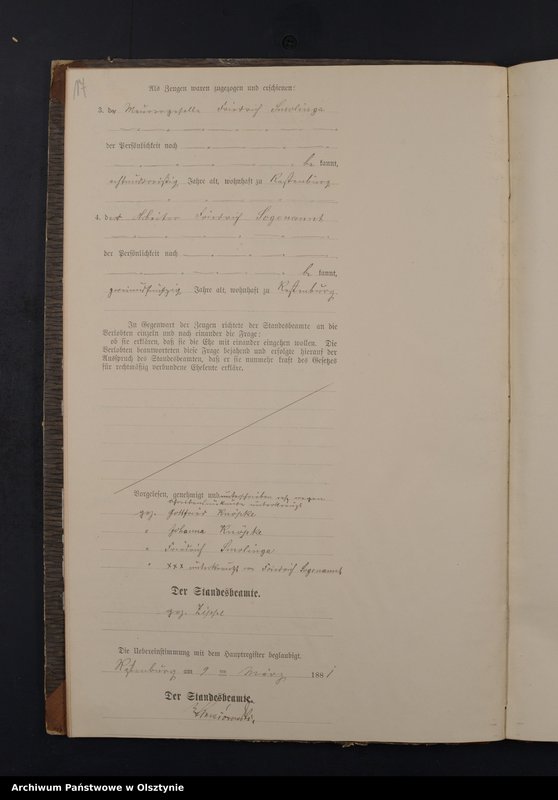 17
Als Zeugen waren zugezogen und erschienen:
3. der Maurergeselle Friedrich Smolinga
der Persönlichkeit nach
be kannt,
Jahre alt, wohnhaft zu Rastenburg
4. der Arbeiter Friedrich Sogenannt
der Persönlichkeit nach
be kannt,
zweiundfünfzig Jahre alt, wohnhaft zu Rastenburg
In Gegenwart der Zeugen richtete der Standesbeamte an die
Verlobten einzeln und nach einander die Frage:
ob sie erklären, daß sie die Ehe mit einander eingehen wollen. Die
Verlobten beantworteten diese Frage bejahend und erfolgte hierauf der
Ausspruch des Standesbeamten, daß er sie nunmehr kraft des Gesetzes
für rechtmäßig verbundene Eheleute erkläre.
Vorgelesen, genehmigt und unterschrieben resp. wegen
Schreibensunkunde unterkreuzt
gez. Gottfried Knöpke
" Johanna Knöpke
" Friedrich Smolinga
" xxx unterkreuzt von Friedrich Sogenannt
Der Standesbeamte.
gez. Zippel
Die Uebereinstimmung mit dem Hauptregister beglaubigt.
Rastenburg am 9 ten März 1881
Der Standesbeamte.
Archiwum Państwowe w Olsztynie